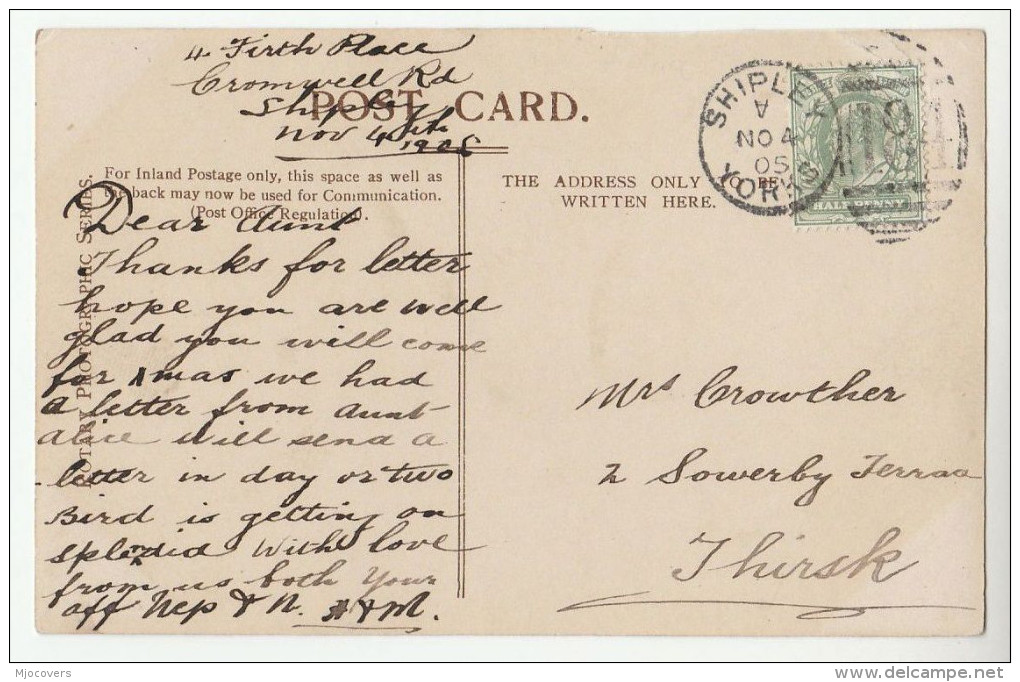 4 Firth Place
Cromwell Rd
Shipley
Nov 4th
1905
POST CARD.
For Inland Postage only, this space as well as
the back may now be used for Communication.
(Post Office Regulation).
THE ADDRESS ONLY TO BE
WRITTEN HERE.
ROTARY PHOTOGRAPHIC SERIES.
SHIPLEY
A
NO 4
05
YORKS
HALFPENNY
Dear Aunt
Thanks for letter
hope you are well
glad you will come
for Xmas we had
a letter from Aunt
Alice will send a
letter in day or two
Bird is getting on
splendid With love
from us both Your
aff Nep & N. H & M.
Mrs Crowther
2 Sowerby Terrace
Thirsk
Mjocovers
www.delcampe.net